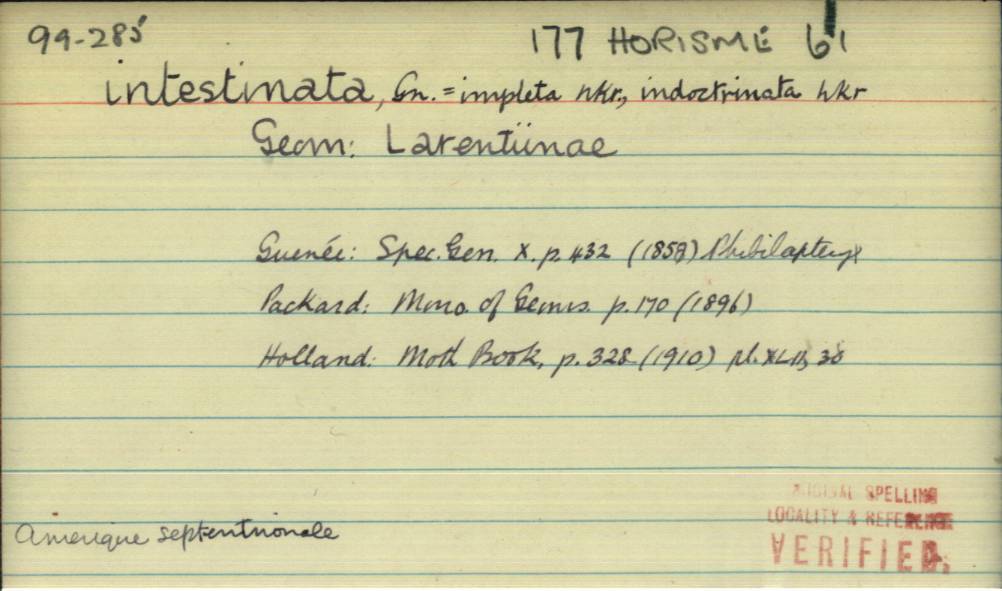 99-285
177 HORISME 61
intestinata, Gn. = impleta Wkr., indoctrinata Wkr
Geom: Larentiinae
Guenée: Spec. Gen. X. p. 432 (1858) Phibilapteryx
Packard: Mono. of Geoms. p. 170 (1896)
Holland: Moth Book, p. 328 (1910) pl. XLII, 30
ORIGINAL SPELLING
LOCALITY & REFERENCE
VERIFIED.
Amérique septentrionale